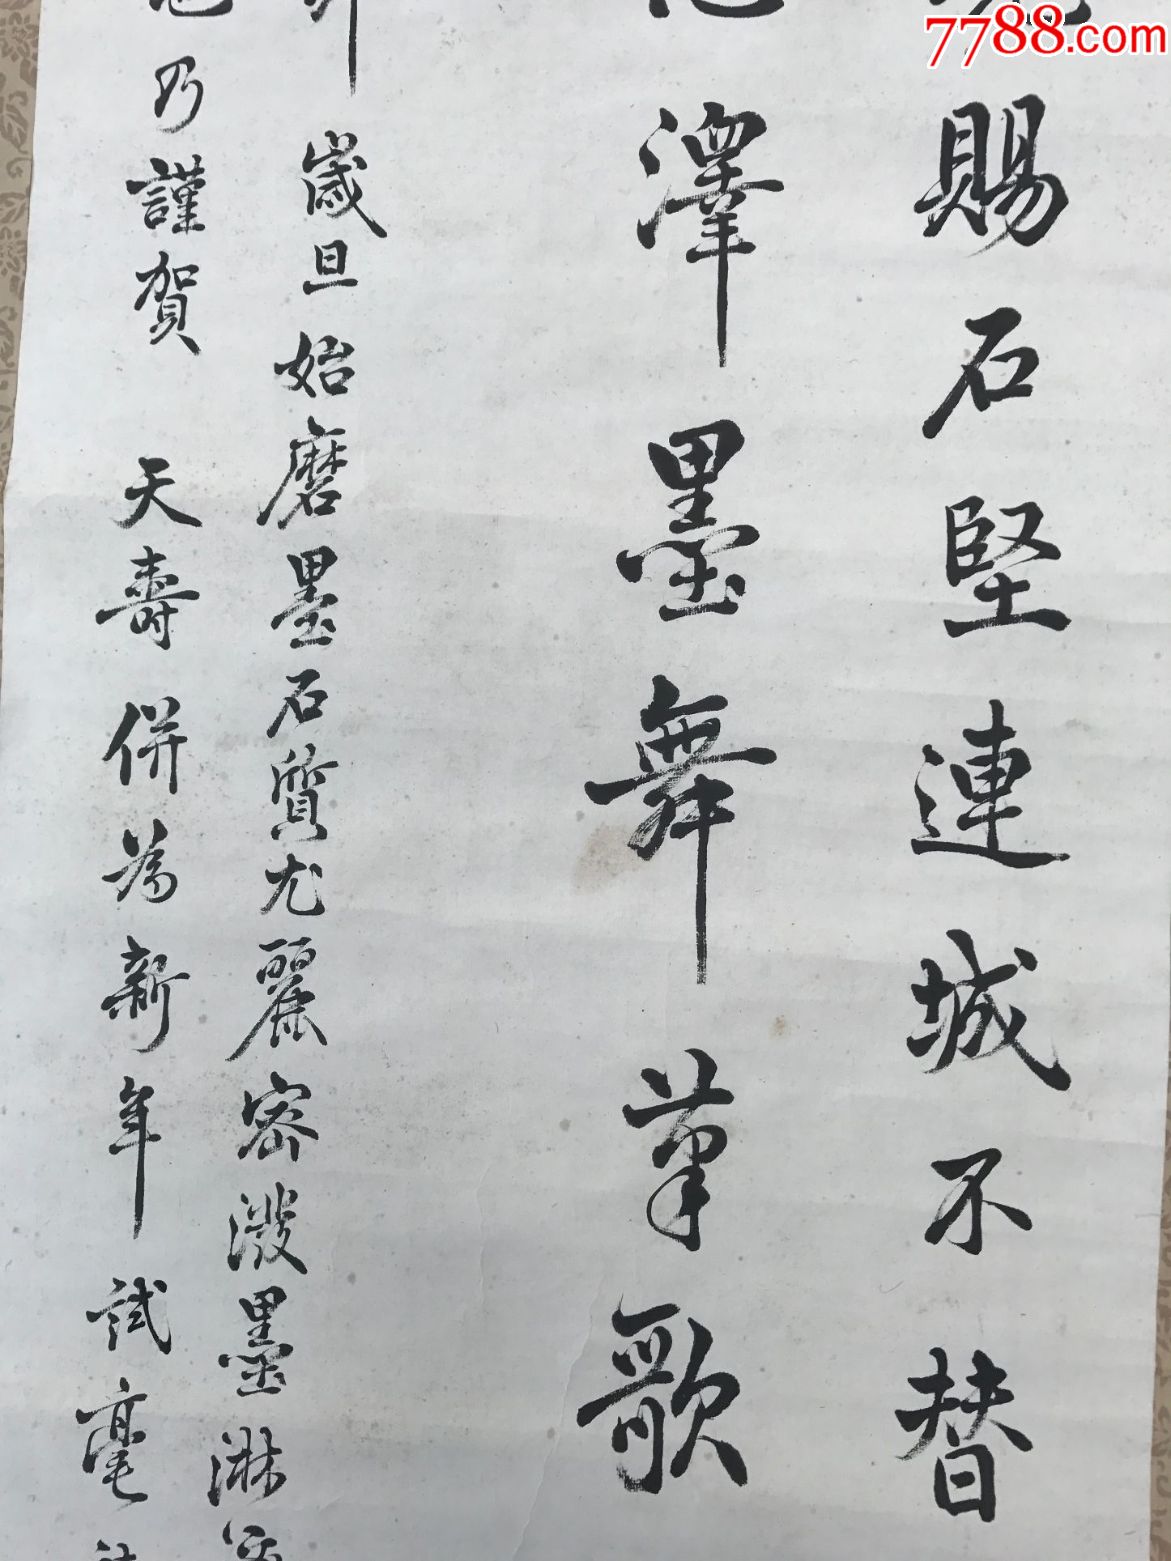 7788.com
賜石堅連城不替
澤墨舞筆歌
歲旦始磨墨石質尤麗密潑墨淋
乃謹賀天壽併為新年試毫